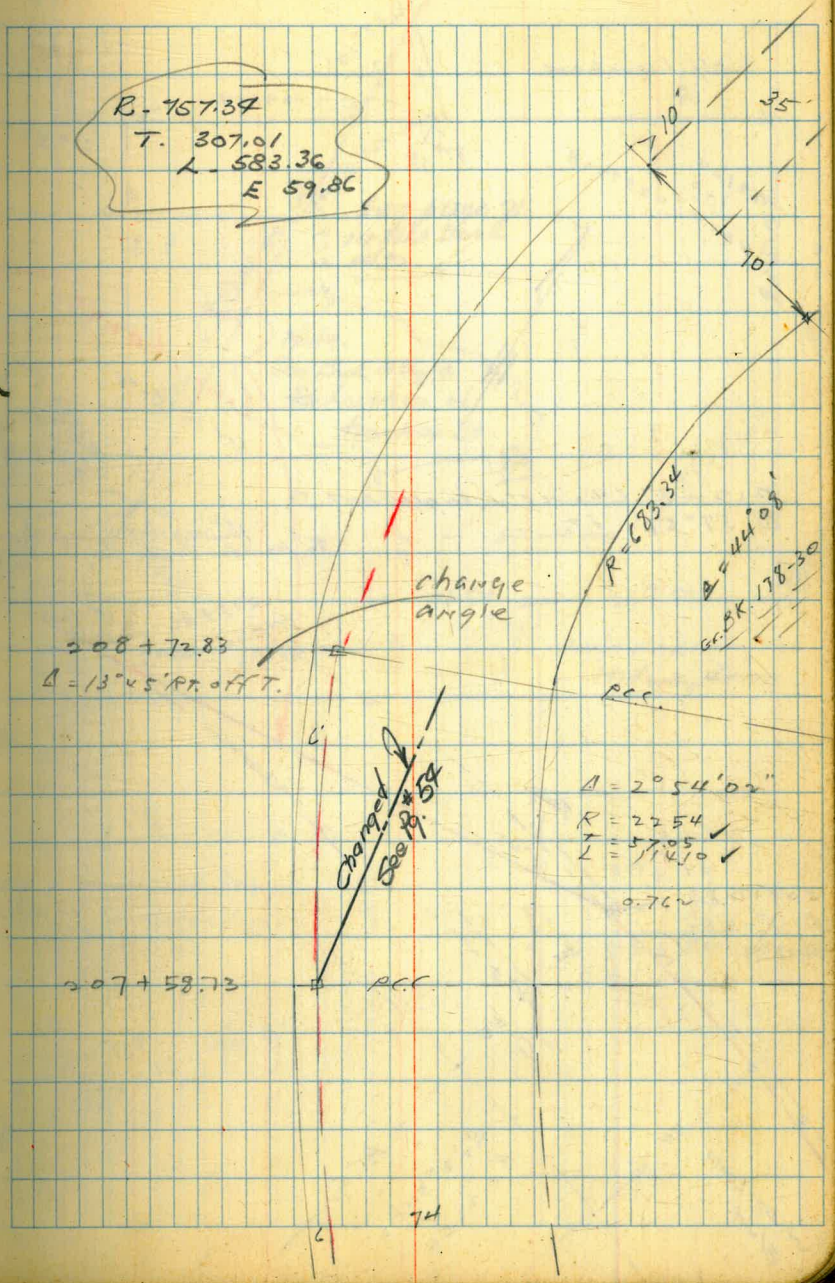 R - 757.34
T. 307.01
L - 583.36
E 59.86
10'
35'
70'
R = 683.34
Δ = 44°08'
Gr. BK. 178-30
change
angle
208 + 72.83
Δ = 13°45' Rt. off T.
P.C.C.
Changed
See Pg. #54
Δ = 2° 54' 02"
R = 2254
T = 57.05 ✓
L = 114.10 ✓
0.762
207 + 58.73
P.C.C.
74